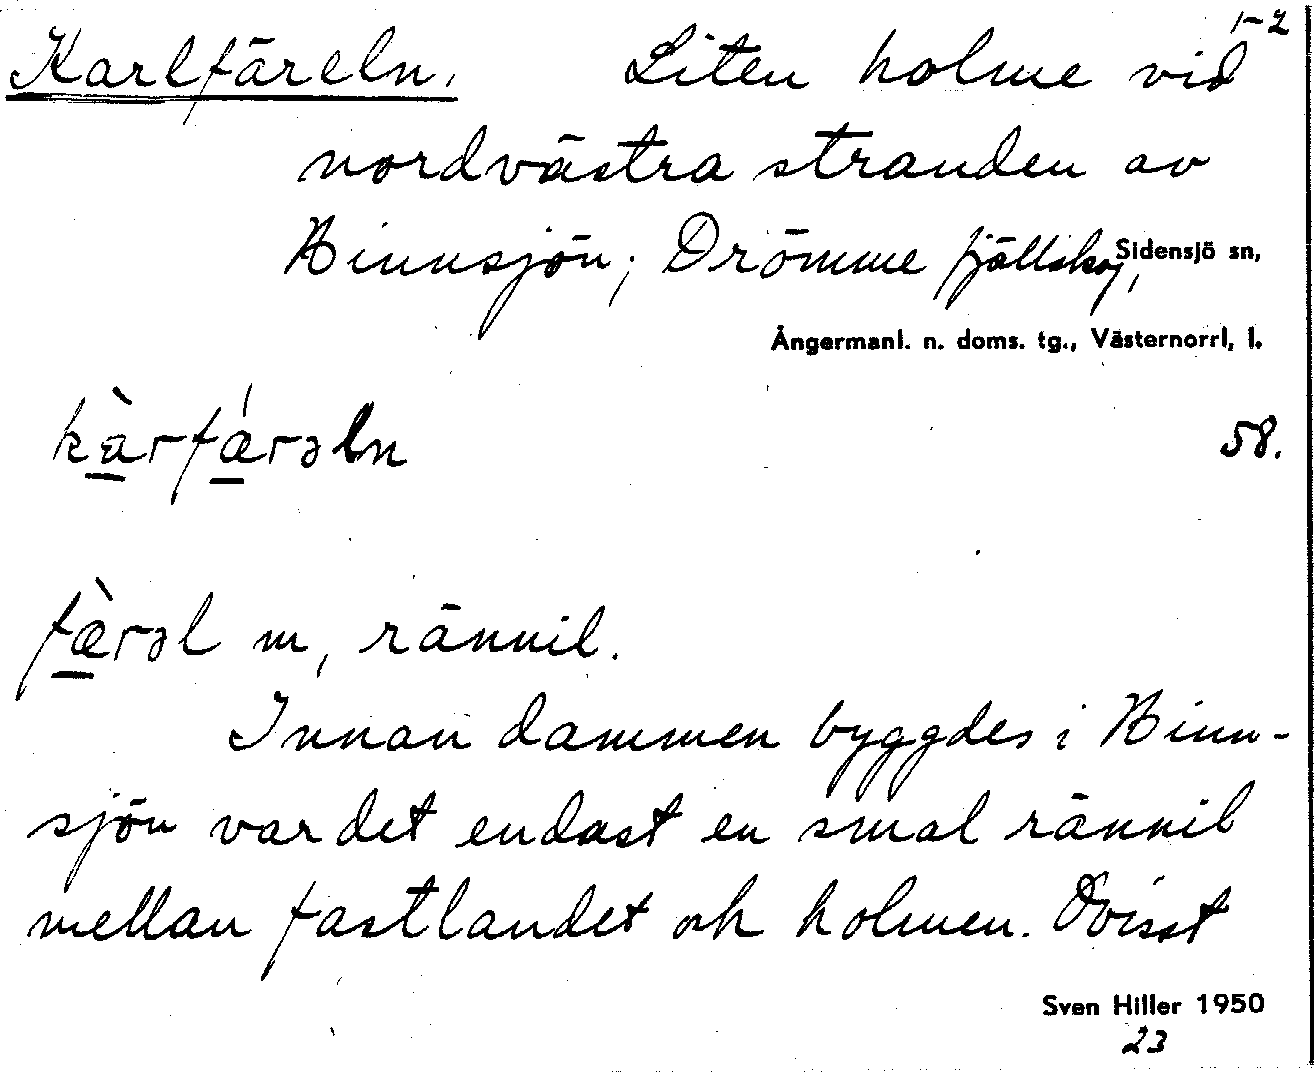 1-2
Karlfäreln. Liten holme vid
nordvästra stranden av
Binnsjön; Drömme fjällskog, Sidensjö sn,
Ångermanl. n. doms. tg., Västernorrl, l.
kàrfǽrəln 58.
fæ̀rəl m, rännil.
Innan dammen byggdes i Binn-
sjön var det endast en smal rännil
mellan fastlandet och holmen. Ovisst
Sven Hiller 1950
23